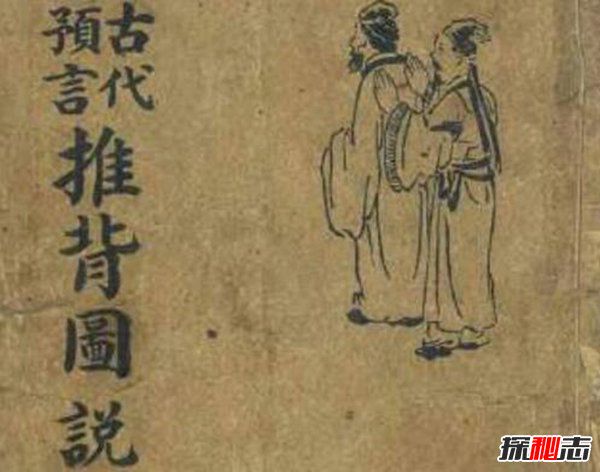 古代
預言
推背圖說
探秘志